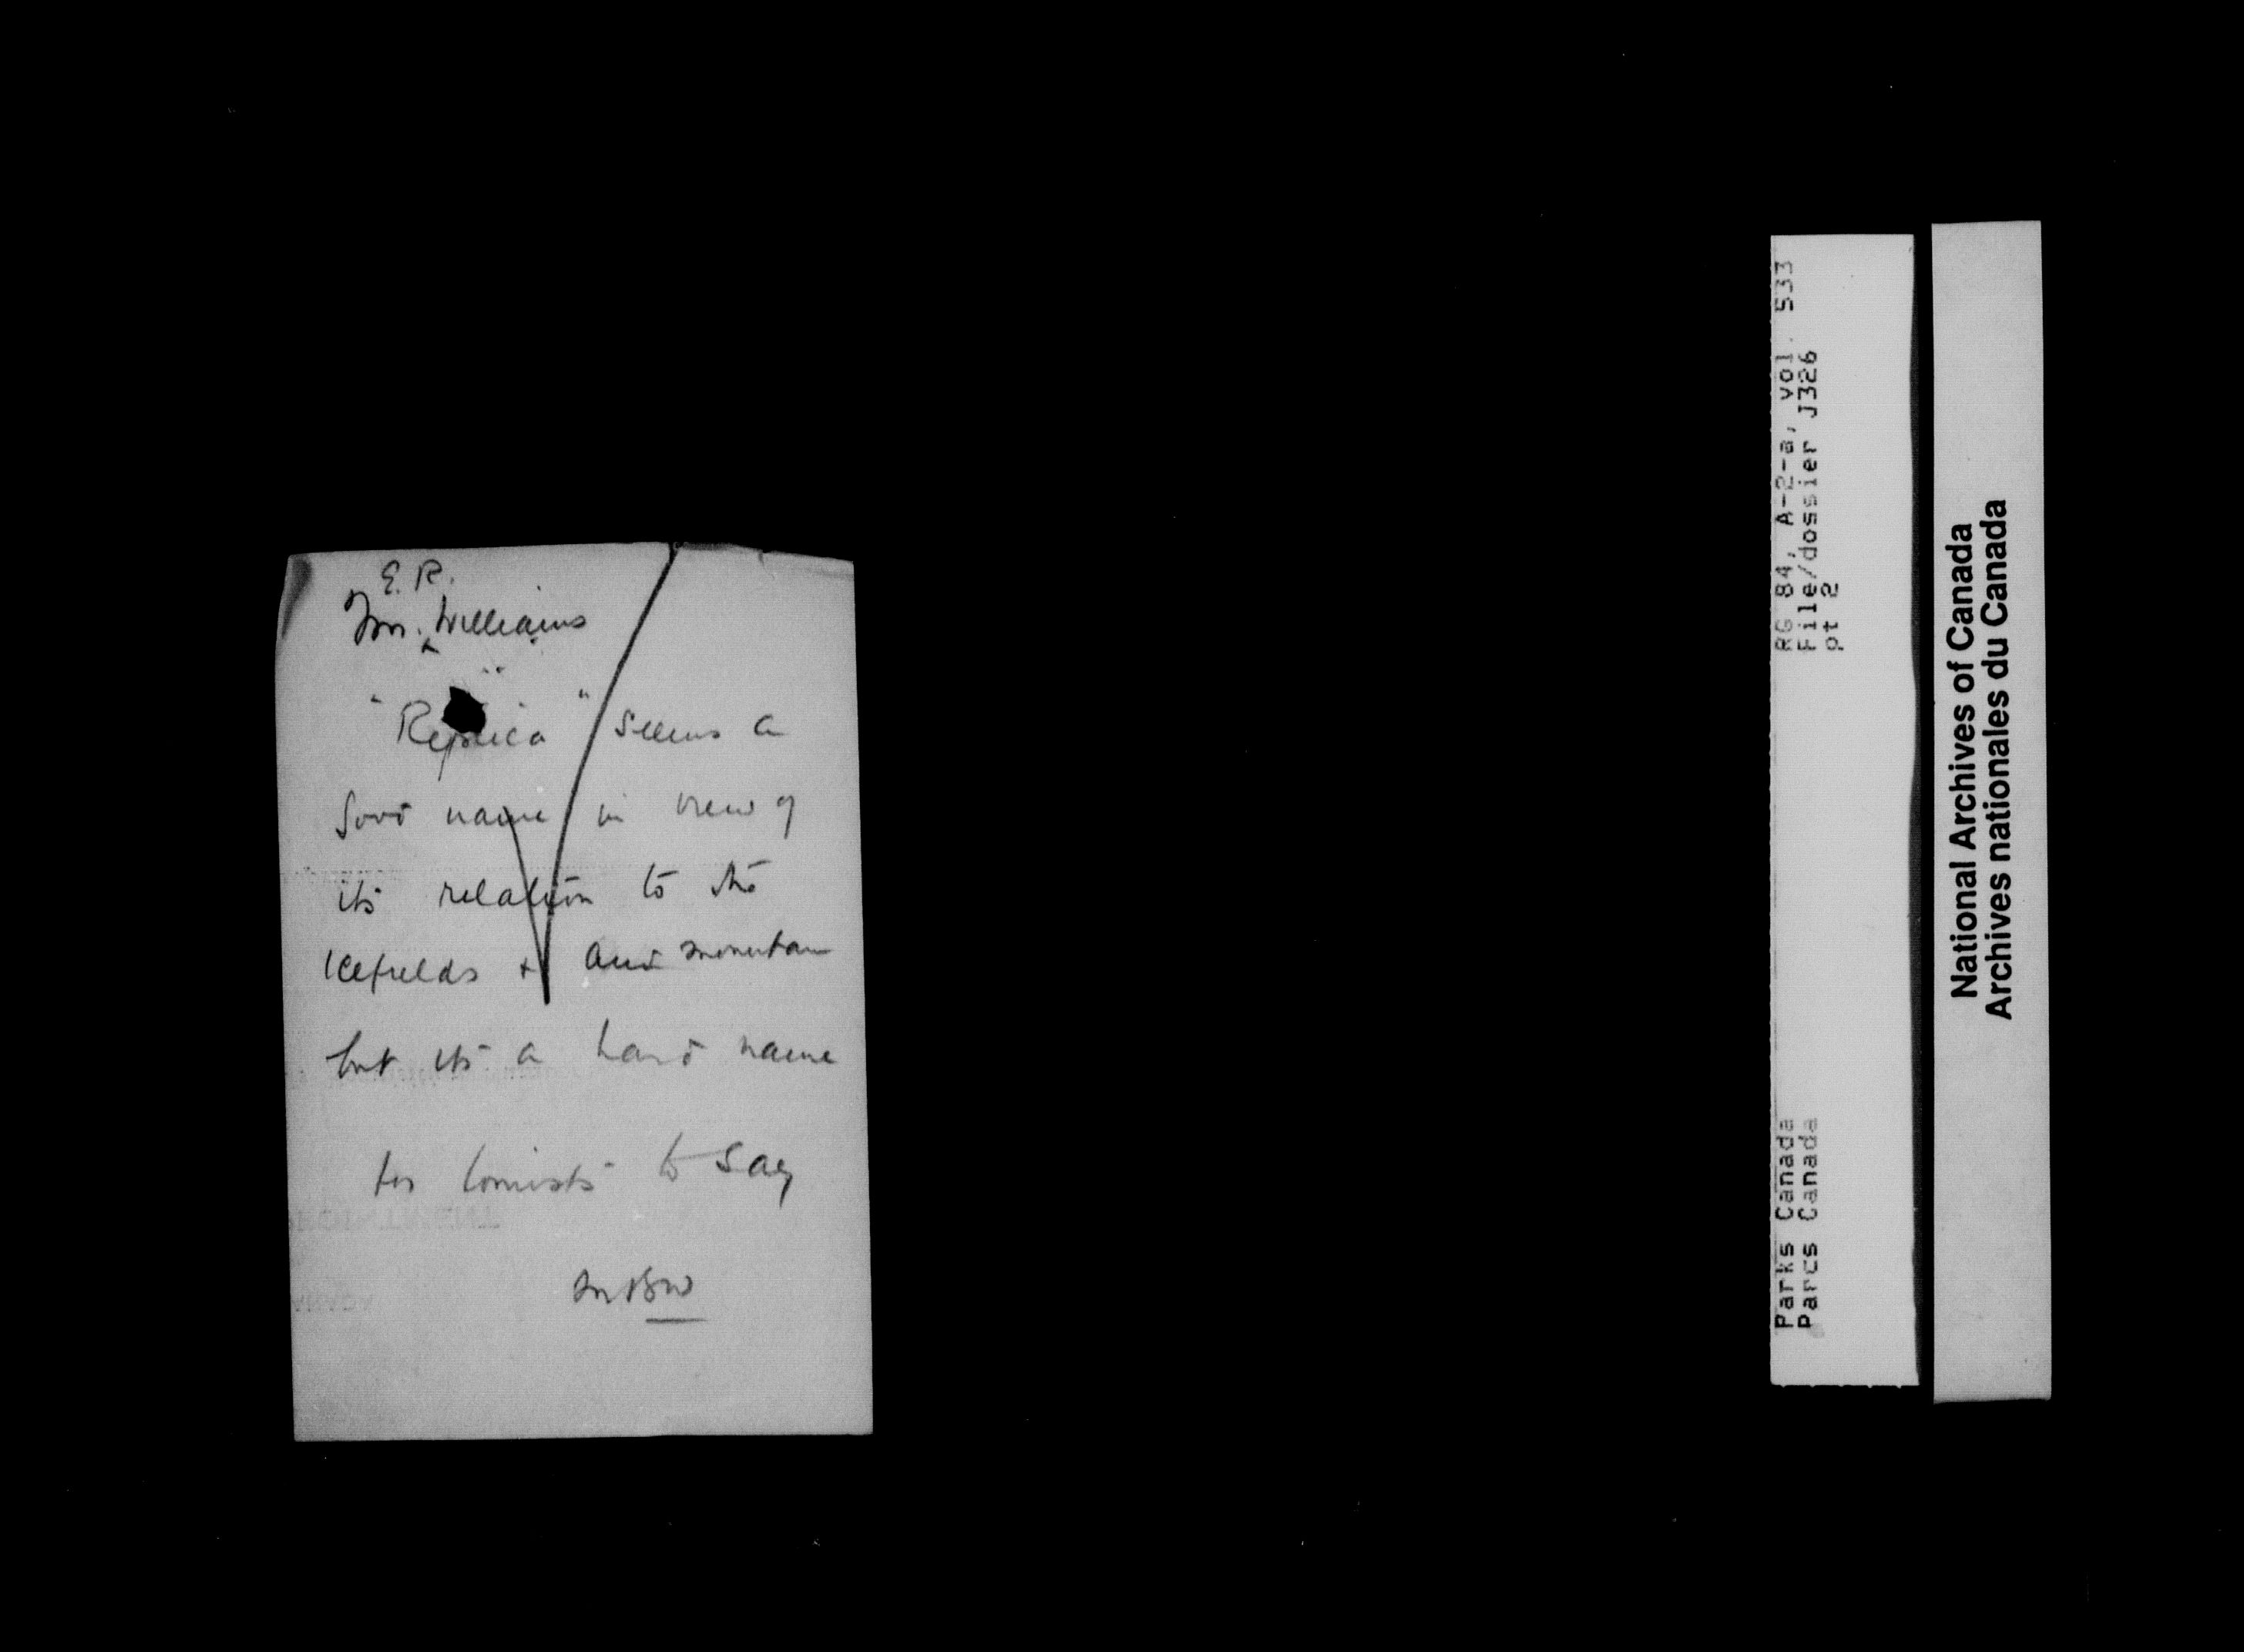 E. R.
Mr. Williams
"Replica" seems a
good name in view of
its relation to the
Icefields & and mountain
but its a hard name
for tourists to say
MBW
RG 84, A-2-a, vol. 533
File/dossier J326
pt 2
Parks Canada
Parcs Canada
National Archives of Canada
Archives nationales du Canada